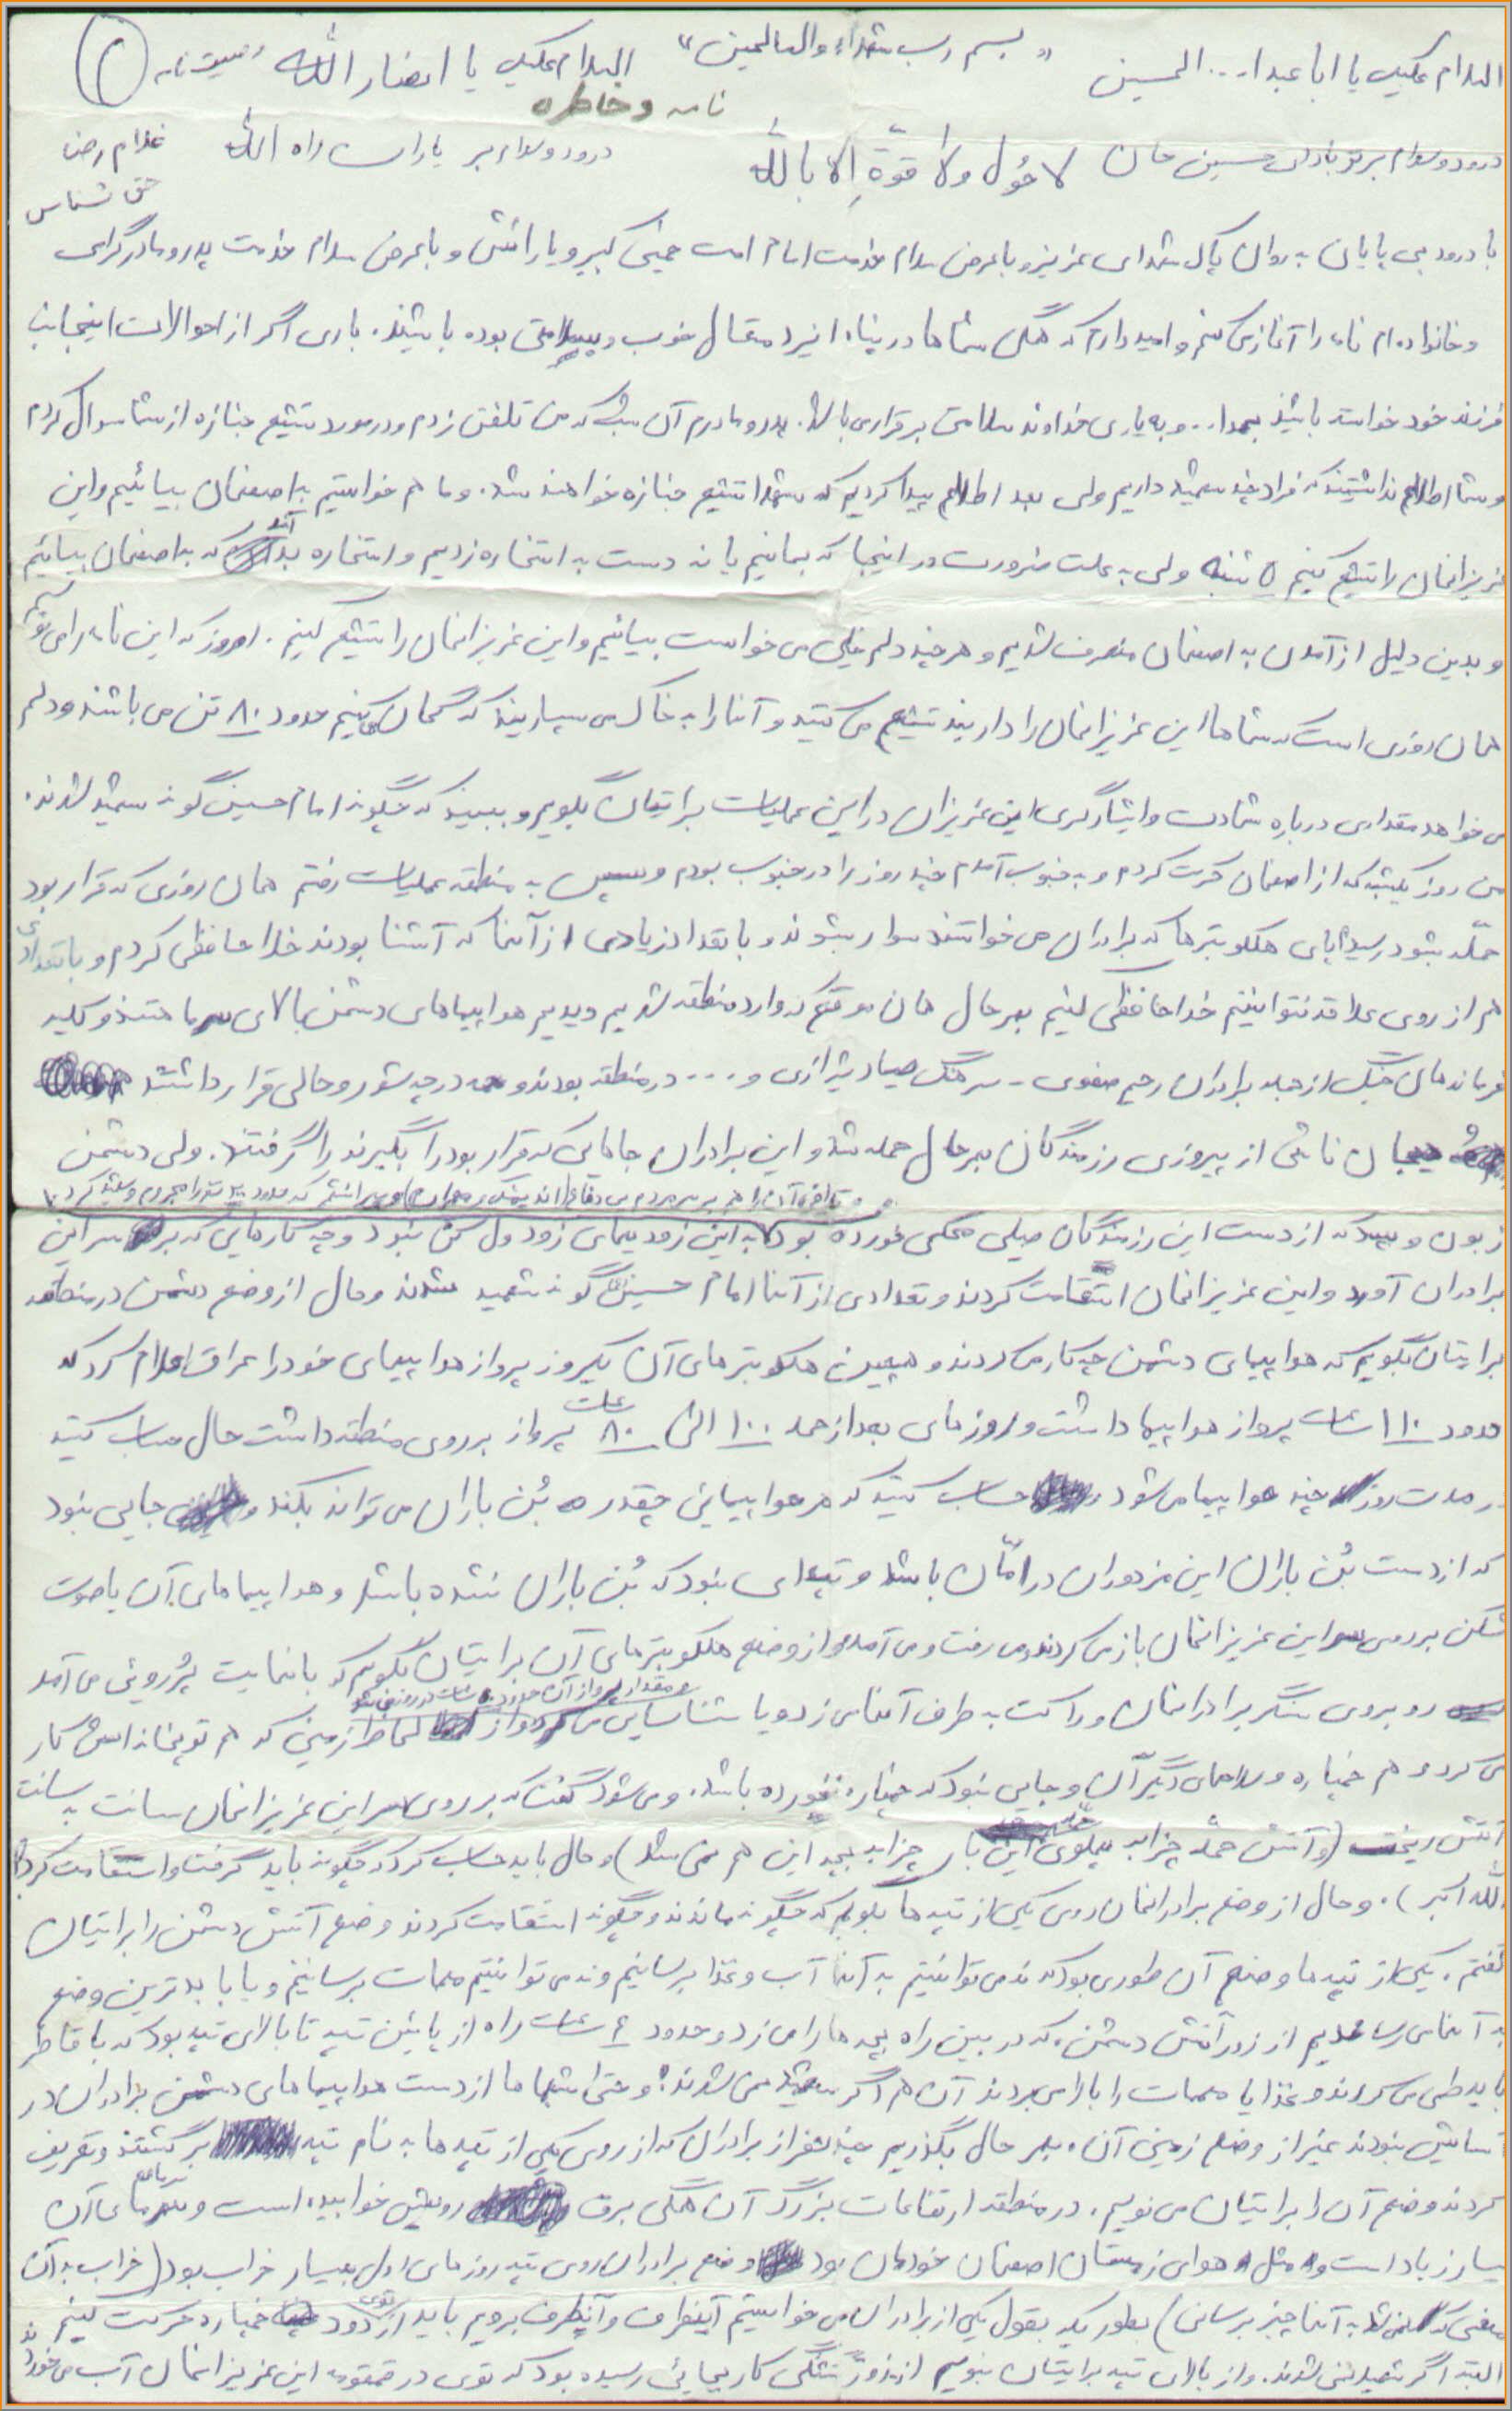 السلام علیک یا ابا عبدا... الحسین « بسم رب شهداء والصالحین » السلام علیک یا انصار الله وصیت نامه ۲
نامه و خاطره
درود و سلام بر تو باد ای حسین جان لا حول ولا قوة إلا بالله درود و سلام بر یاران راه الله غلام رضا
حق شناس
با درود بی پایان به روان پاک شهدای عزیز و با عرض سلام خدمت امام امت خمینی کبیر و یارانش و با عرض سلام خدمت پدر و مادر گرامی
و خانواده ام نامه را آغاز می کنم و امیدوارم که همگی شماها در پناه ایزد متعال خوب و سلامتی بوده باشید. باری اگر از احوالات اینجانب
فرزند خود خواسته باشید بحمدا... و به یاری خداوند سلامتی برقرار می باشد. پدر و مادرم آن شبی که من تلفن زدم و در مورد تشیع جنازه از شما سوال کردم
و شما اطلاع نداشتید که فردا چند شهید داریم ولی بعد اطلاع پیدا کردیم که شهدا تشیع جنازه خواهند شد. و ما هم خواستیم به اصفهان بیائیم و این
عزیزانمان را تشیع کنیم ۵ شنبه ولی به علت ضرورت در اینجا که بمانیم یا نه دست به استخاره زدیم و استخاره بد آمد که به اصفهان بیائیم
و بدین دلیل از آمدن به اصفهان منصرف شدیم و هر چند دلم خیلی می خواست بیائیم و این عزیزانمان را تشیع کنیم. امروز که این نامه را می نویسم
همان روزی است که شماها این عزیزانمان را دارید تشیع می کنید و آنها را به خاک می سپارید که گمان می کنیم حدود ۸۰ تن می باشند و دلم
می خواهد مقداری درباره شهادت و ایثارگری این عزیزان در این عملیات برایتان بگویم و ببینید که چگونه امام حسین گونه شهید شدند.
من روز یکشنبه که از اصفهان حرکت کردم و به جنوب آمدم چند روز را در جنوب بودم و سپس به منطقه عملیات رفتم همان روزی که قرار بود
حمله بشود رسیدم پای هلکوبترها که برادران می خواستند سوار بشوند و با تعداد زیادی از آنها که آشنا بودند خدا حافظی کردم و با تعدادی
هم از روی علاقه نتوانستم خدا حافظی کنم بهر حال همان موقع که وارد منطقه شدیم دیدیم هواپیماهای دشمن بالای سر ما هستند و کلیه
فرماندهان جنگ از جمله برادران رحیم صفوی - سرهنگ صیاد شیرازی و .... در منطقه بودند و همه در چه شور و حالی قرار داشتند
هیجان ناشی از پیروزی رزمندگان بهر حال حمله شد و این برادران جاهایی که قرار بود را بگیرند را گرفتند. ولی دشمن
زبون و پلید که از دست این رزمندگان سیلی محکمی خورده بود به این زودیهای زود ول کن نبود و چه کارهایی که بر سر این
برادران آورد و این عزیزانمان استقامت کردند و تعدادی از آنها امام حسین گونه شهید شدند و حال از وضع دشمن در منطقه
برایتان بگویم که هواپیمای دشمن چه کار می کردند و همچنین هلکوبترهای آن یک روز پرواز هواپیمای خود را عراق اعلام کرد که
حدود ۱۱۰ ساعت پرواز هواپیما داشت و روزهای بعد از حمله ۱۰۰ الی ۸۰ ساعت پرواز بر روی منطقه داشت حال حساب کنید
در مدت روز چند هواپیما می شود و حساب کنید که هر هواپیمایی چقدر بُمب باران می تواند بکند و جایی نبود
که از دست بُمب باران این مزدوران در امان باشد و تپه ای نبود که بُمب باران نشده باشد و هواپیماهای آن با صوت
شکن بر روی سر این عزیزانمان باز می کردند و می رفت و می آمد و از وضع هلکوبترهای آن برایتان بگویم که با نهایت پُرروئی می آمد
رو بروی سنگر برادرانمان و راکت به طرف آنها می زد و یا شناسایی می کرد و از لحاظ زمینی که هم توپخانه اش کار
می کرد و هم خمپاره و سلاحهای دیگر آن و جایی نبود که خمپاره نخورده باشد. و می شود گفت که بر روی سر این عزیزانمان سانت به سانت
آتش ریخت (و آتش حمله چزابه پهلوی این بار چزابه بچه این هم نمی شد) و حال باید حساب کرد که چگونه باید گرفت و استقامت کرد؟
(الله اکبر). و حال از وضع برادرانمان روی یکی از تپه ها بگویم که چگونه ماندند و چگونه استقامت کردند وضع آتش دشمن را برایتان
گفتم. یکی از تپه ها وضع آن طوری بود که نه می توانستیم به آنها آب و غذا برسانیم و نه می توانستیم مهمات برسانیم و یا با بدترین وضع
به آنها می رساندیم از زور آتش دشمن، که در بین راه بچه ها را می زد و حدود ۴ ساعت راه از پایین تپه تا بالای تپه بود که با قاطر
باید طی می کردند و غذا یا مهمات را بالا می بردند آن هم اگر شهید نمی شدند؟ و حتی شبها ما از دست هواپیماهای دشمن برادران در
آسایش نبودند غیر از وضع زمینی آن. بهر حال بگذریم چند نفر از برادران که از روی یکی از تپه ها به نام تپه برگشتند و تعریف
کردند وضع آن را برایتان می نویسم. در منطقه ارتفاعات بزرگ آن همگی برف رویش خوابیده است و سرمای آن
بسیار زیاد است و مثل هوای زمستان اصفهان خودمان بود وضع برادران روی تپه روزهای اول بسیار خراب بود (خراب به آن
معنی که نمی شد به آنها چیز برسانی) بطوریکه بقول یکی از برادران می خواستیم اینطرف و آنطرف برویم باید از توی دود خمپاره حرکت کنیم
البته اگر شهید نمی شدند. و از بالای تپه برایتان بنویسم از زور تشنگی کار بجایی رسیده بود که توی در قمقمه این عزیزانمان آب می خوردند